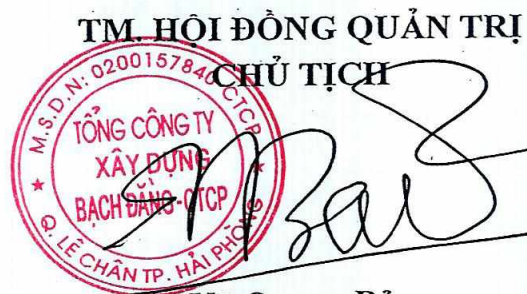 TM. HỘI ĐỒNG QUẢN TRỊ
CHỦ TỊCH
M.S.D.N: 0200157840 CTCP
TỔNG CÔNG TY
XÂY DỰNG
BẠCH ĐẰNG-CTCP
Q. LÊ CHÂN TP. HẢI PHÒNG